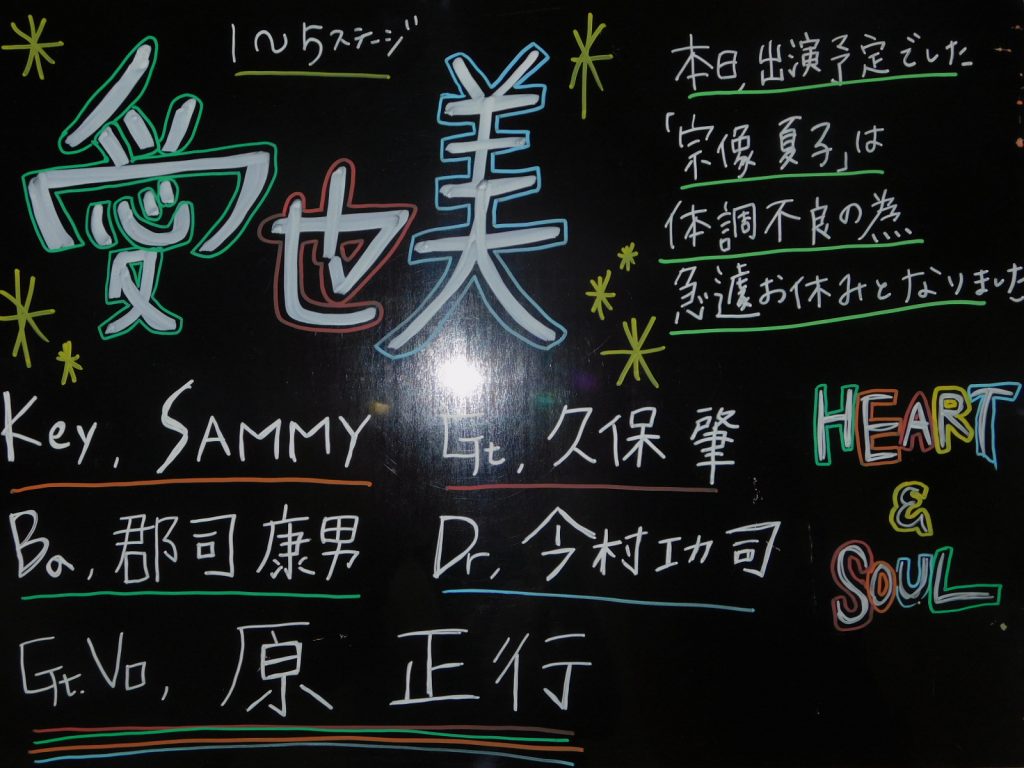 1〜5ステージ
愛也美
本日、出演予定でした
「宗像 夏子」は
体調不良の為
急遽お休みとなりました
Key, SAMMY
Gt, 久保 肇
Ba, 郡司 康男
Dr, 今村 功司
Gt.Vo, 原 正行
HEART
&
SOUL